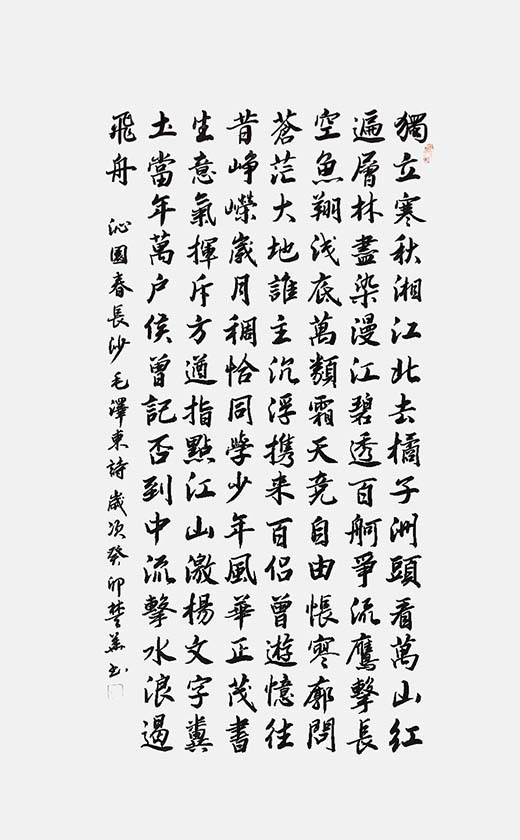 獨立寒秋湘江北去橘子洲頭看萬山紅
遍層林盡染漫江碧透百舸爭流鷹擊長
空魚翔浅底萬類霜天竞自由悵寥廓問
蒼茫大地誰主沉浮携来百侣曾遊憶往
昔崢嶸歲月稠恰同學少年風華正茂書
生意氣揮斥方遒指點江山激楊文字糞
土當年萬户侯曾記否到中流擊水浪遏
飛舟
沁園春長沙毛澤東詩歲次癸卯楚